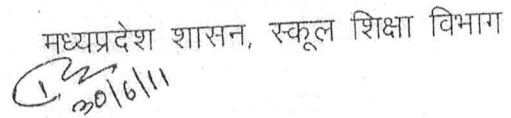 मध्यप्रदेश शासन, स्कूल शिक्षा विभाग
30/6/11